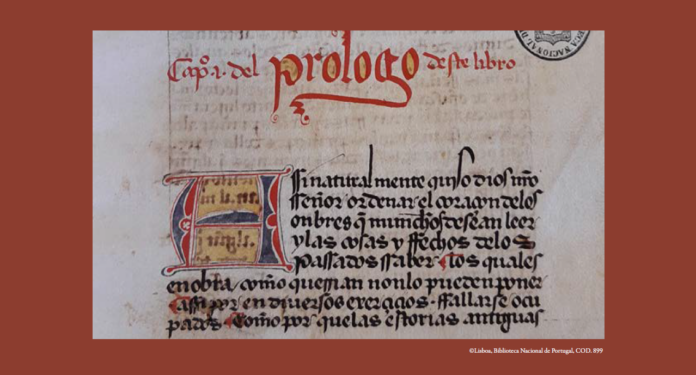 Capº.1. del prologo deste libro
Assi naturalmente quiso dios nro
sseñor ordenar el coraçon delos
onbres q̃ muchos desean leer
y las cosas y ffechos delos
passados ssaber. Los quales
en obra, como querrian non lo pueden poner
assi por en diuersos exerçiçios. ffallarse ocu
pados. Como por que las estorias antiguas
©Lisboa, Biblioteca Nacional de Portugal, COD. 899